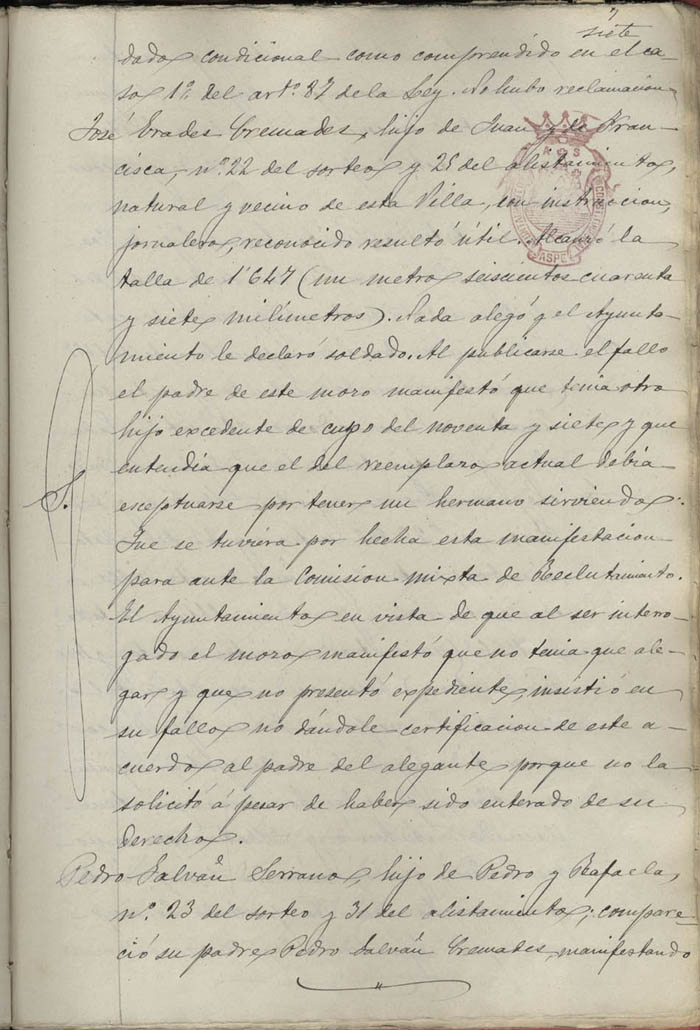 7
siete
dado condicional como comprendido en el ca-
so 1º del artº 87 de la Ley. No hubo reclamacion
José Erades Cremades, hijo de Juan y de Fran-
cisca, nº 22 del sorteo y 25 del alistamiento,
natural y vecino de esta Villa, con instruccion,
jornalero, reconocido resultó útil. Alcanzó la
talla de 1'647 (un metro seiscientos cuarenta
y siete milímetros). Nada alegó y el Ayunta-
miento le declaró soldado. Al publicarse el fallo
el padre de este mozo manifestó que tenia otro
hijo excedente de cupo del noventa y siete y que
entendia que el del reemplazo actual debia
esceptuarse por tener un hermano sirviendo.
Que se tuviera por hecha esta manifestacion
S.
para ante la Comision mixta de Reclutamiento.
El Ayuntamiento en vista de que al ser interro-
gado el mozo manifestó que no tenia que ale-
gar y que no presentó expediente, insistió en
su fallo no dándole certificacion de este a-
cuerdo al padre del alegante porque no la
solicitó á pesar de haber sido enterado de su
derecho.
Pedro Galván Serrano, hijo de Pedro y Rafaela,
nº 23 del sorteo y 31 del alistamiento; compare-
ció su padre Pedro Galván Cremades, manifestando
ASPE